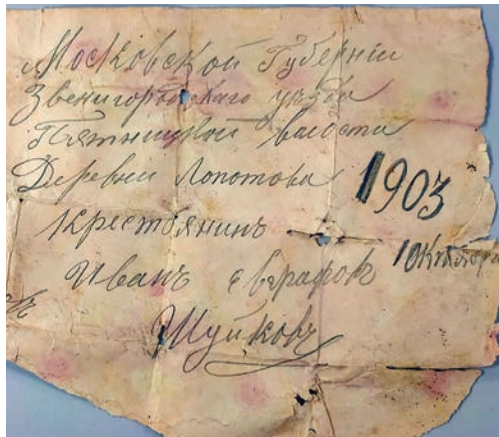 Московской Губернии
Звенигородскаго уѣзда
Пятницкой волости
Деревни Лопотова
1903
Крестьянинъ
1 Октября
Иванъ Евграфовъ
Шуйковъ